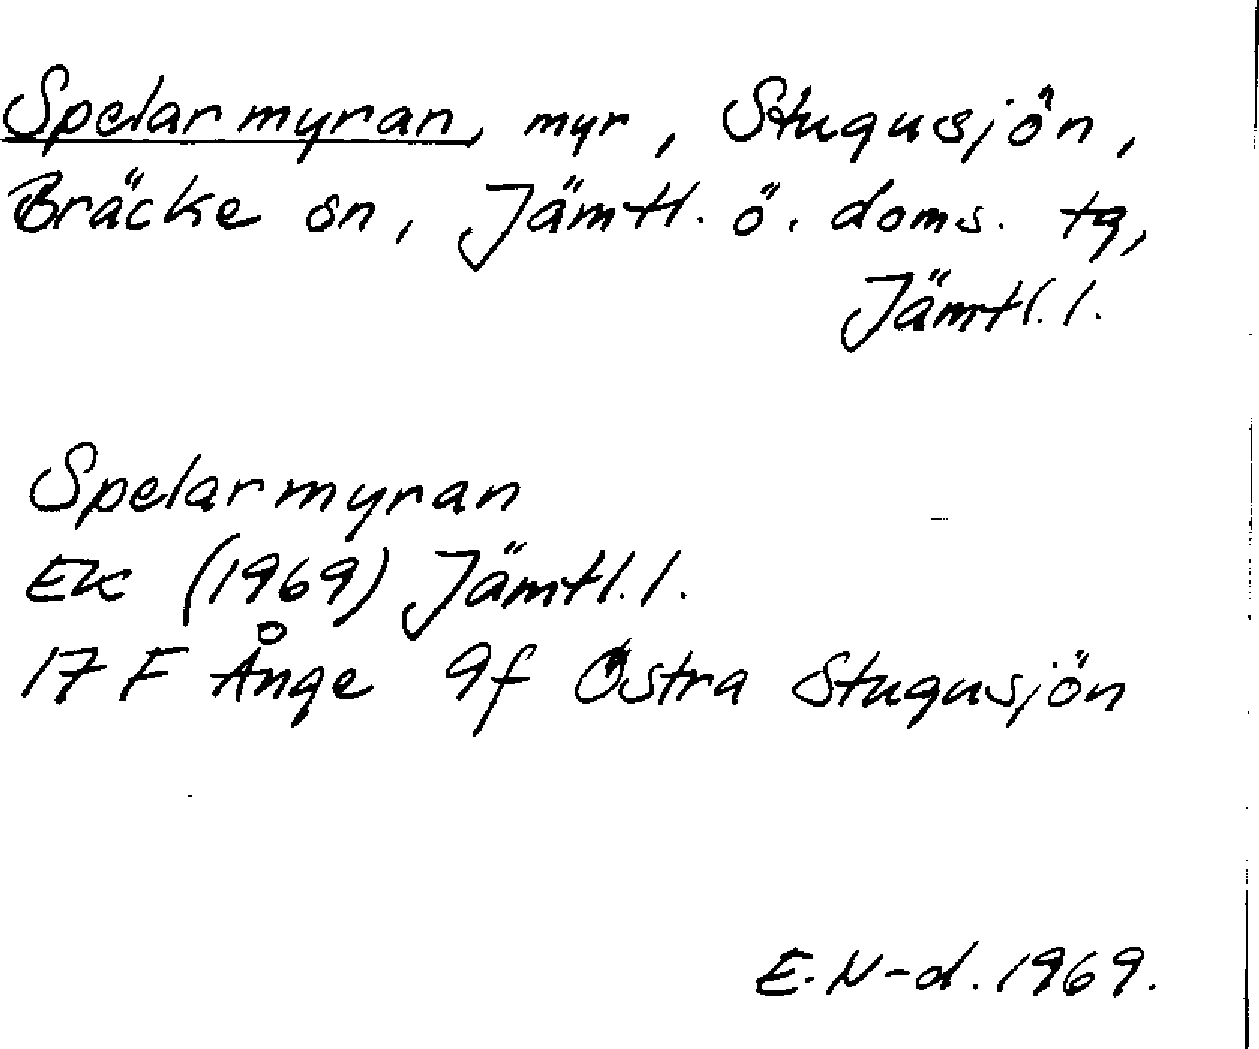 Spelarmyran, myr, Stugusjön,
Bräcke sn, Jämtl. ö. doms. tg,
Jämtl. l.
Spelarmyran
EK (1969) Jämtl. l.
17 F Ånge 9f Östra Stugusjön
E. N-d. 1969.